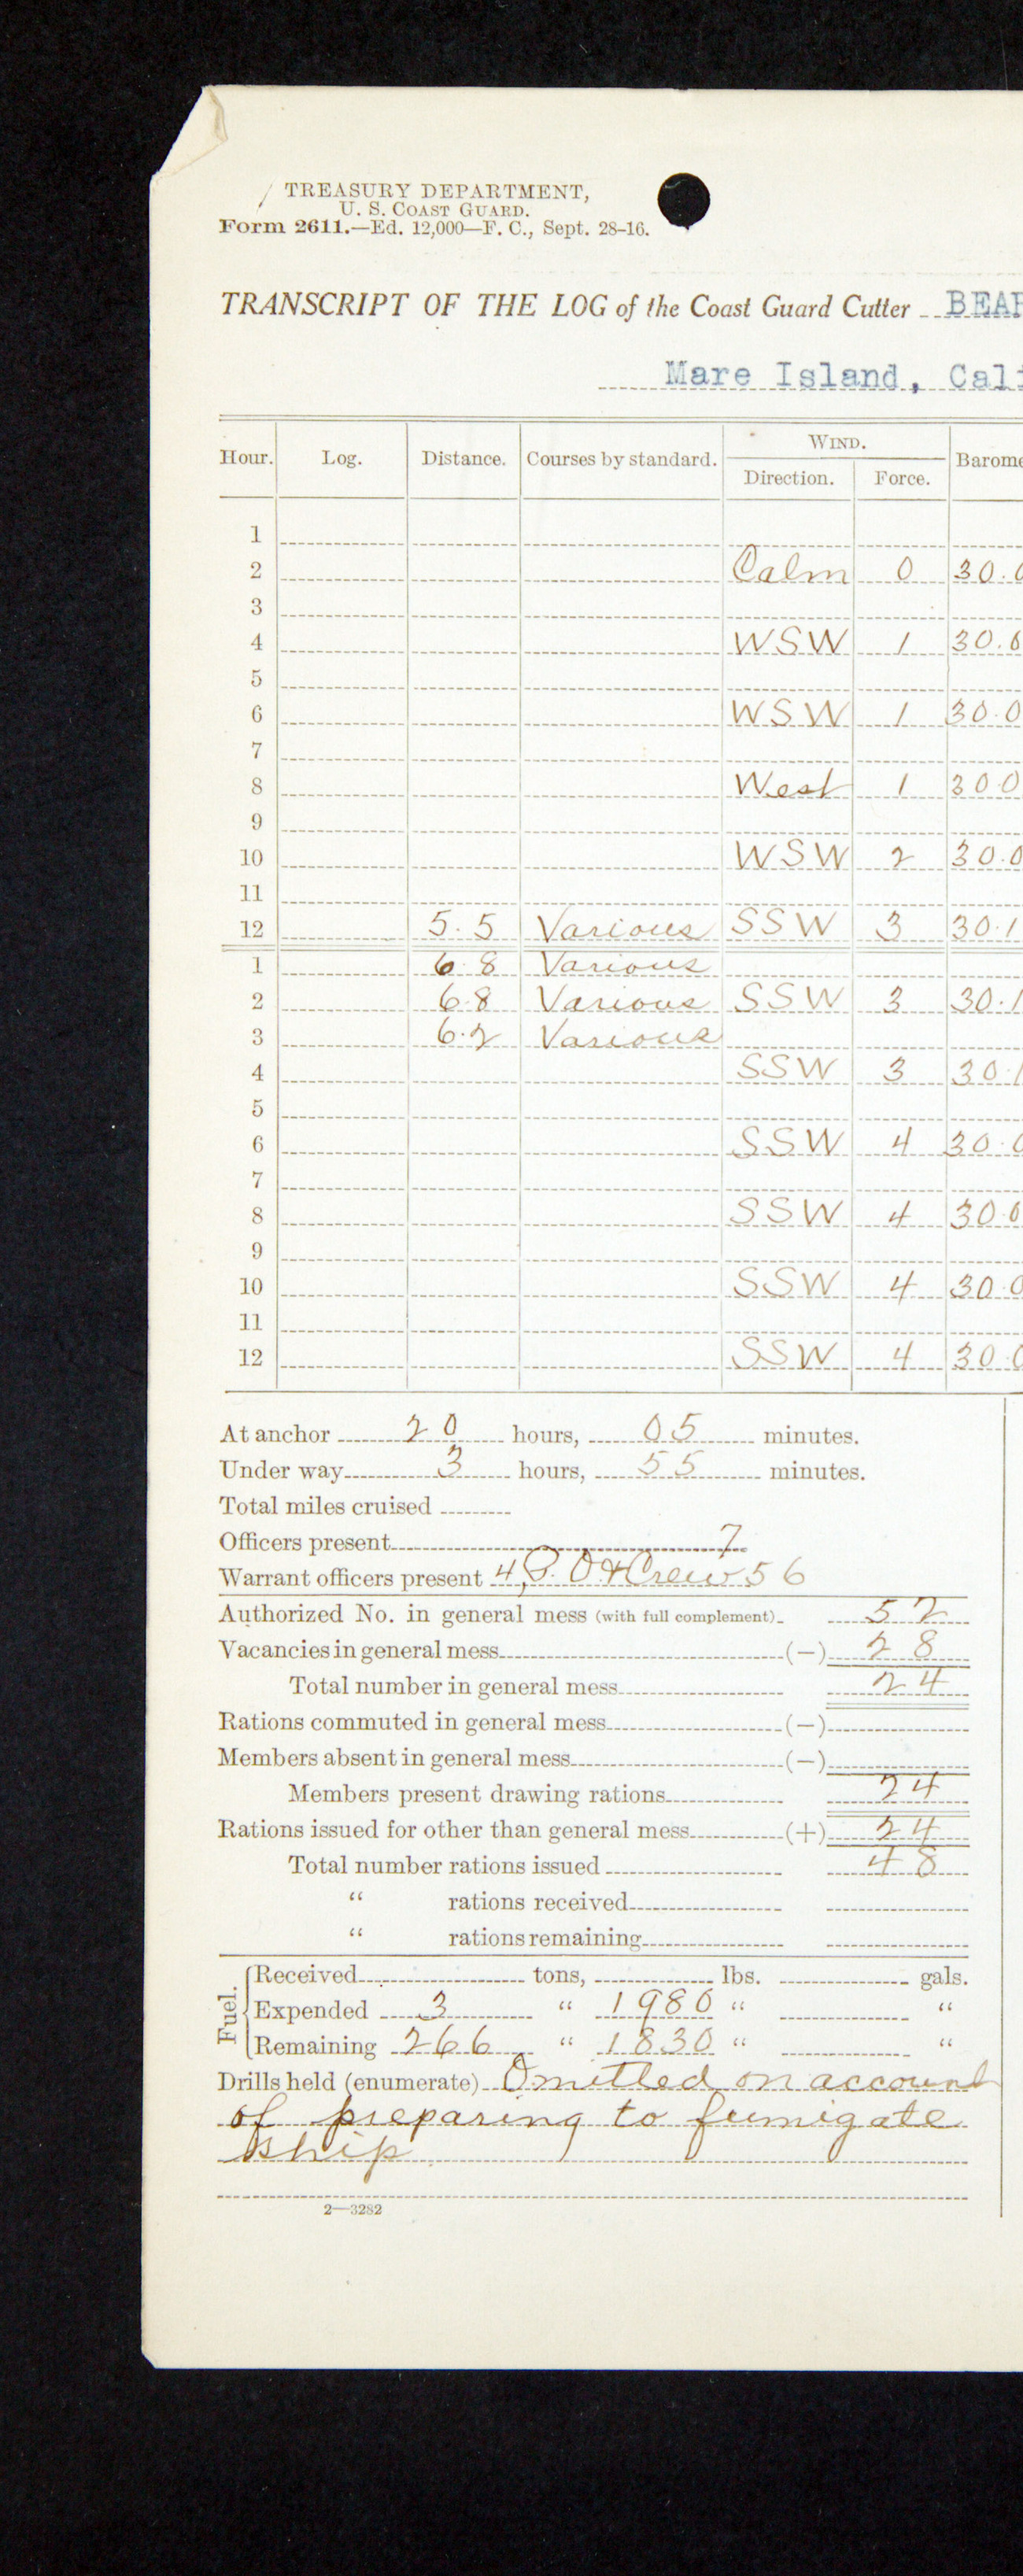 TREASURY DEPARTMENT,
U. S. COAST GUARD.
Form 2611.—Ed. 12,000—F. C., Sept. 28-16.
TRANSCRIPT OF THE LOG of the Coast Guard Cutter BEAR
Mare Island, Cali
WIND.
Hour. Log. Distance. Courses by standard. Direction. Force. Barome
1
2 Calm 0 30.0
3
4 WSW 1 30.0
5
6 WSW 1 30.0
7
8 West 1 30.0
9
10 WSW 2 30.0
11
12 5.5 Various SSW 3 30.1
1 6.8 Various
2 6.8 Various SSW 3 30.1
3 6.2 Various
4 SSW 3 30.1
5
6 SSW 4 30.0
7
8 SSW 4 30.0
9
10 SSW 4 30.0
11
12 SSW 4 30.0
At anchor 20 hours, 05 minutes.
Under way 3 hours, 55 minutes.
Total miles cruised
Officers present 7
Warrant officers present 4, P. O & Crew 56
Authorized No. in general mess (with full complement) 52
Vacancies in general mess (—) 28
Total number in general mess 24
Rations commuted in general mess (—)
Members absent in general mess (—)
Members present drawing rations 24
Rations issued for other than general mess (+) 24
Total number rations issued 48
“ rations received
“ rations remaining
Fuel. Received tons, lbs. gals.
Expended 3 “ 1980 “ “
Remaining 266 “ 1830 “ “
Drills held (enumerate) Omitted on account
of preparing to fumigate
ship
2—3282